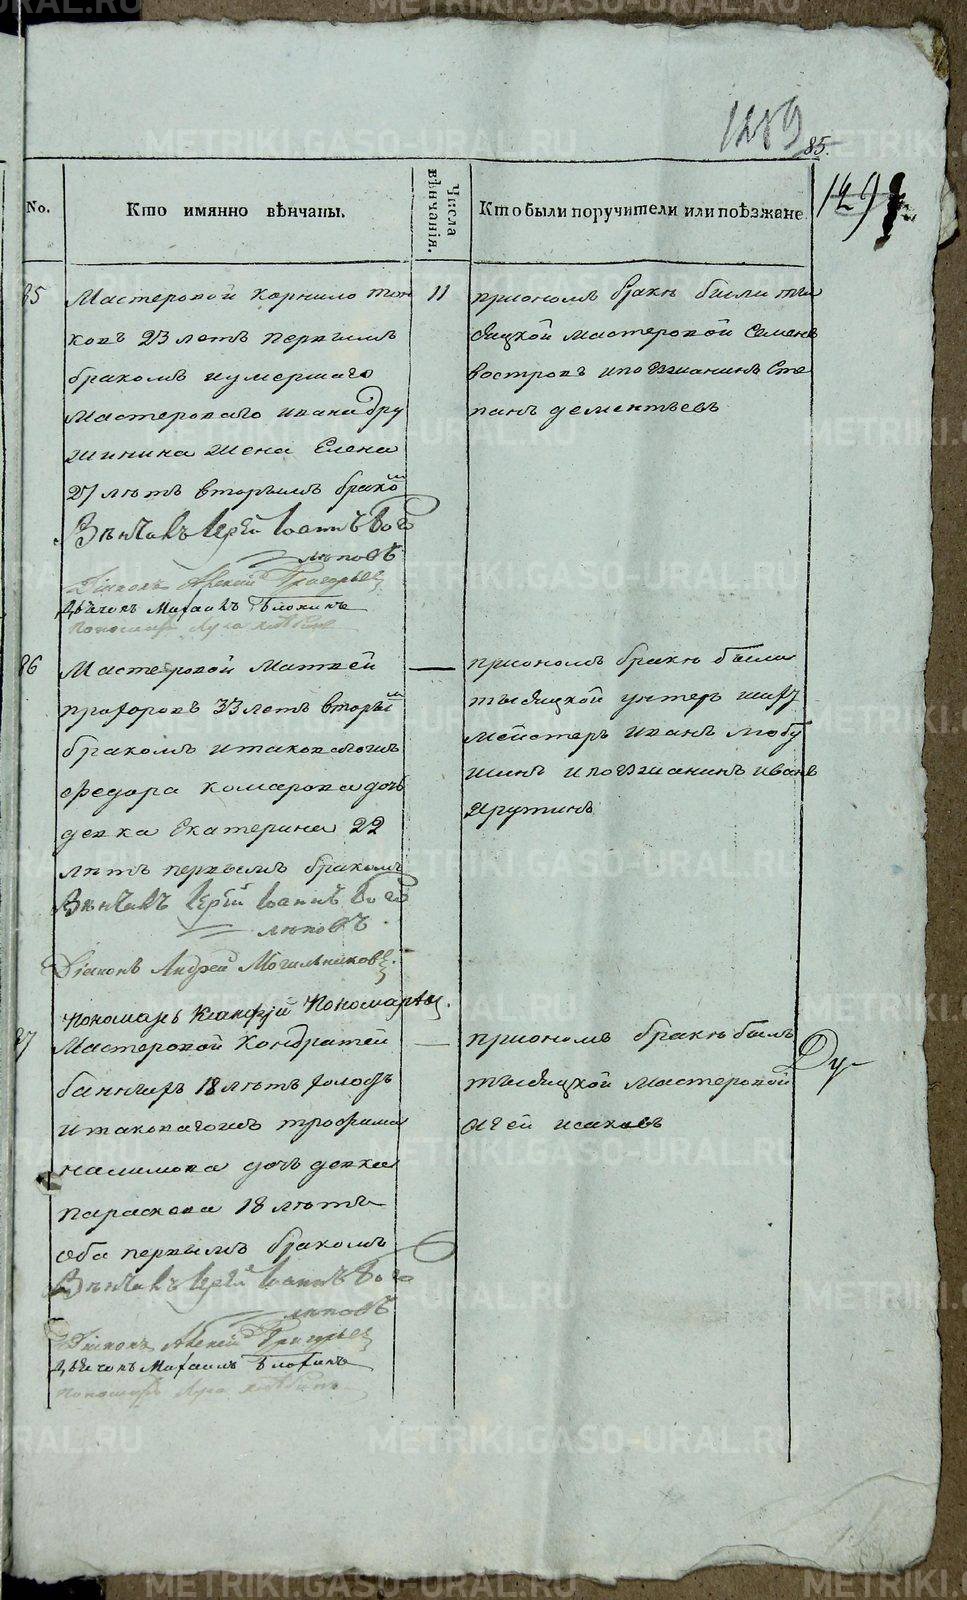 1289
85.
129
No.
Кто имянно вѣнчаны.
Числа вѣнчанія.
Кто были поручители или поѣзжане
85
Мастеровой Корнило
ковъ 23 летъ первымъ
бракомъ иумершаго
мастероваго ивана дру
жинина жена Елена
27 лѣтъ вторымъ бракомъ
Вѣнчалъ Іерей Іоаннъ Бого
лѣповъ
Діаконъ Алексей Григорьев
Дьячокъ Михаилъ Блохинъ
Пономарь
11
приономъ бракѣ были ты
сяцкой мастеровой Семенъ
востровъ ипоезжанинъ Сте
панъ дементьевъ
86
Мастеровой Матвей
прохоровъ 33 летъ вторым
бракомъ итаковагожъ
федора комарова дочь
девка Екатерина 22
лѣтъ первымъ бракомъ
Вѣнчалъ Іерей Іоаннъ Бого
лѣповъ
Діаконъ Андрей Могильников
Пономарь Ксанфій Пономарев.
приономъ бракѣ были
тысяцкой унтеръ шихт
мейстеръ иванъ любу
шинъ ипоезжанинъ иванъ
87
Мастеровой Кондратей
18 лѣтъ холостъ
итаковагожъ трофима
налимова дочь девка
параскева 18 лѣтъ
оба первымъ бракомъ
Вѣнчалъ Іерей Іоаннъ Бого
лѣповъ
Діаконъ Алексей Григорьев
Дьячокъ Михаилъ Блохинъ
Пономарь
приономъ бракѣ былъ
тысяцкой мастеровой
исаковъ
METRIKI.GASO-URAL.RU